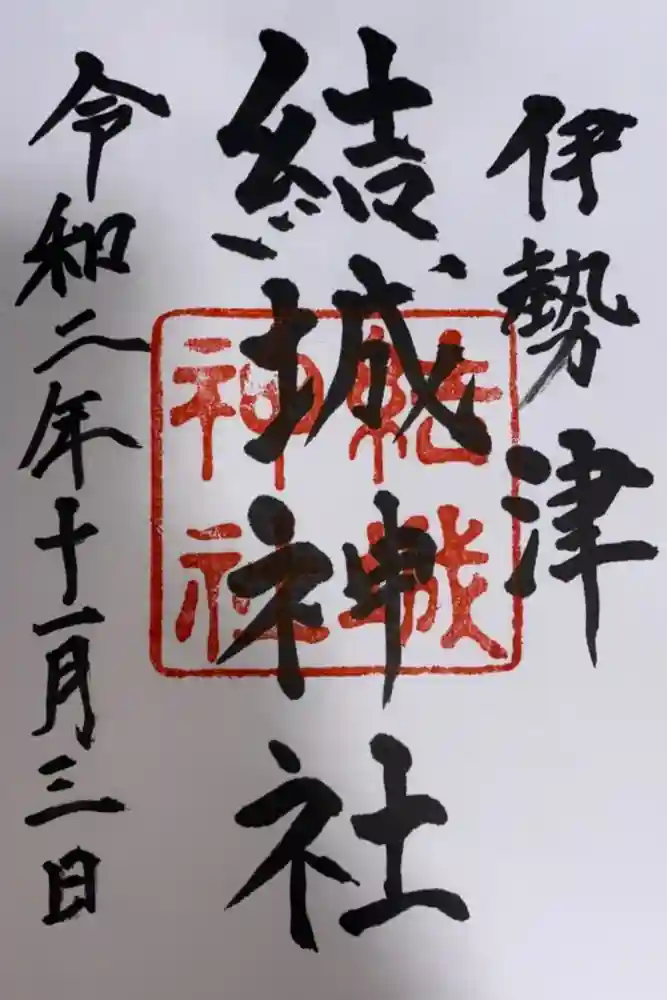 伊勢津
結城神社
結城神社
令和二年十一月三日